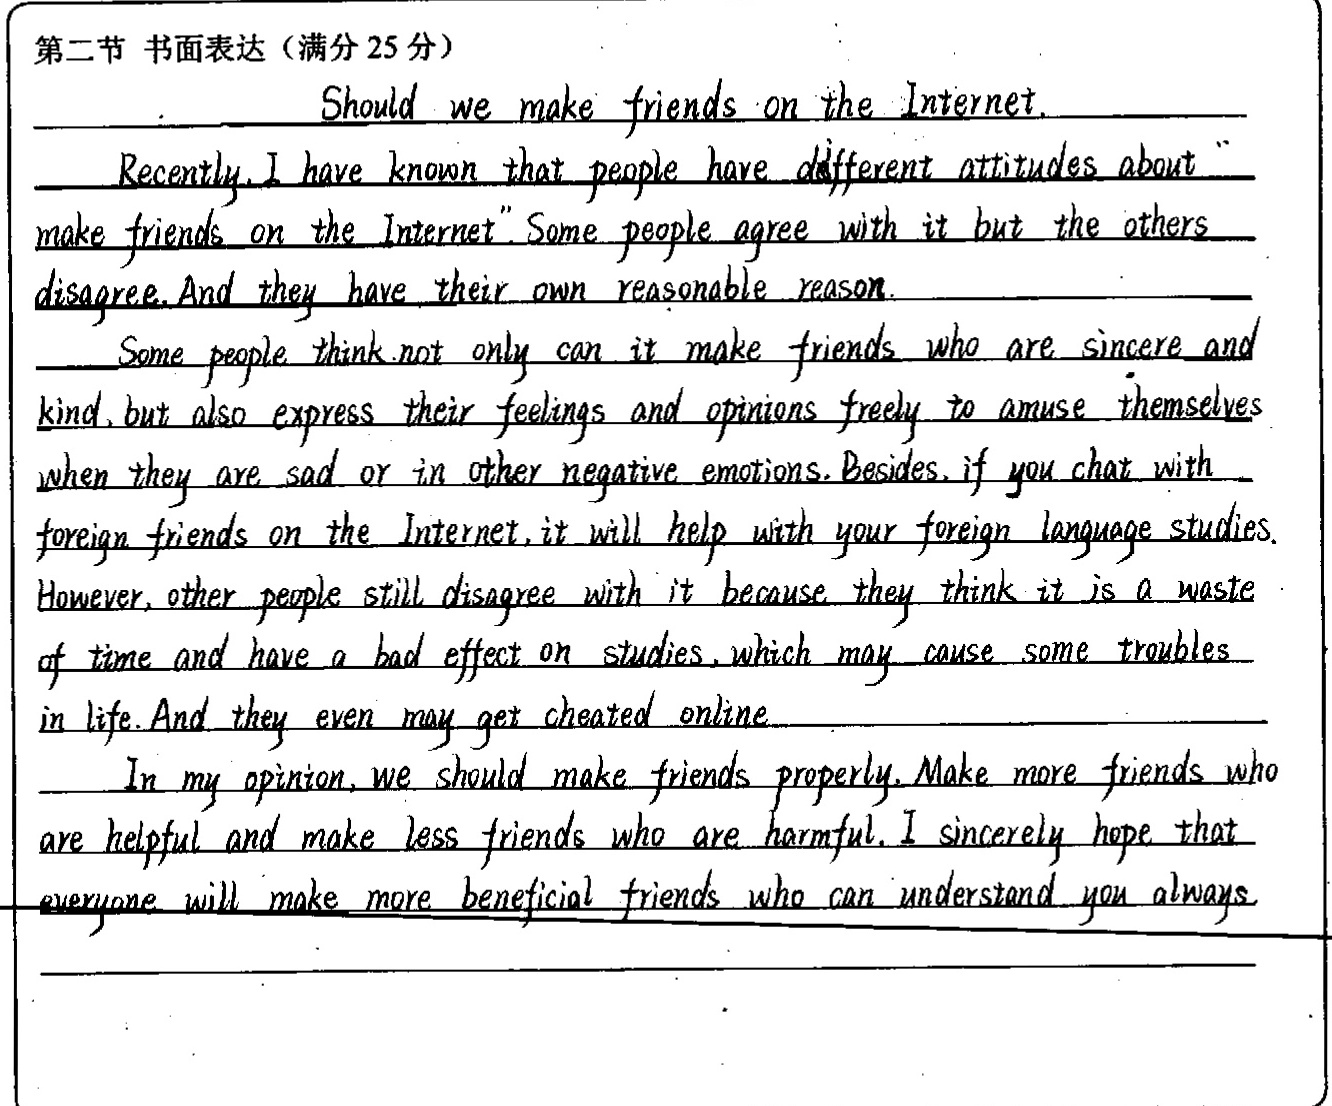 第二节 书面表达（满分 25 分）
Should we make friends on the Internet.
Recently, I have known that people have different attitudes about "
make friends on the Internet". Some people agree with it but the others
disagree. And they have their own reasonable reason.
Some people think not only can it make friends who are sincere and
kind, but also express their feelings and opinions freely to amuse themselves
when they are sad or in other negative emotions. Besides, if you chat with
foreign friends on the Internet, it will help with your foreign language studies.
However, other people still disagree with it because they think it is a waste
of time and have a bad effect on studies, which may cause some troubles
in life. And they even may get cheated online
In my opinion, we should make friends properly. Make more friends who
are helpful and make less friends who are harmful. I sincerely hope that
everyone will make more beneficial friends who can understand you always.